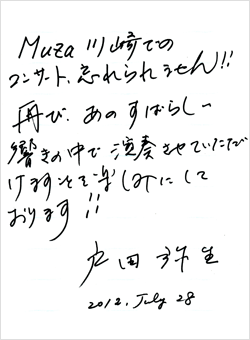 Muza 川崎での
コンサート、忘れられません!!
再び、あのすばらしい
響きの中で演奏させていただ
けますことを楽しみにして
おります!!
戸田弥生
2012. July 28